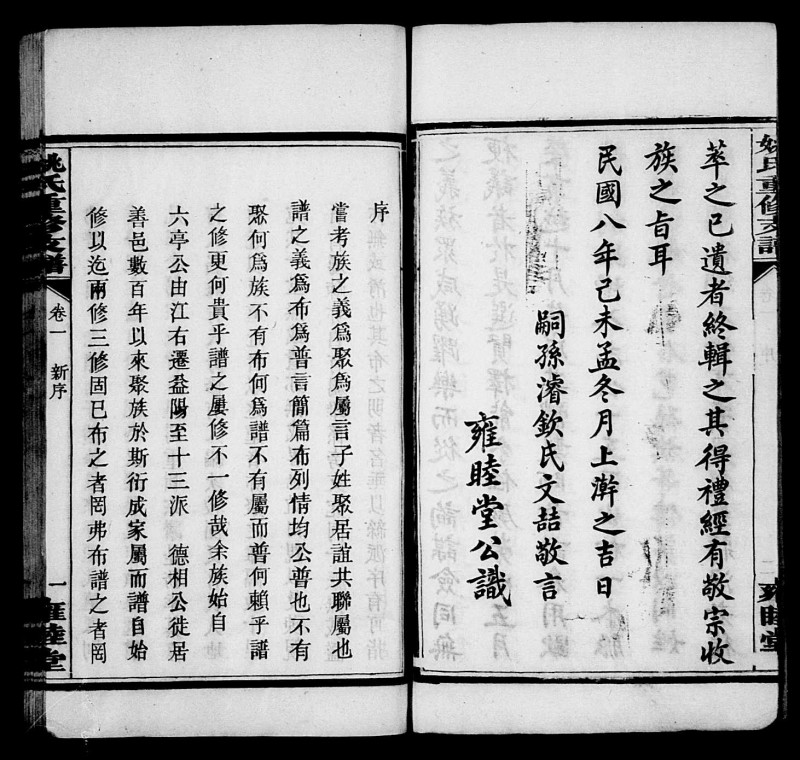 姚氏重修支譜
二
雍睦堂
萃之已遺者終輯之其得禮經有敬宗收
族之旨耳
民國八年己未孟冬月上澣之吉日
嗣孫濬欽氏文喆敬言
雍睦堂公識
序
嘗考族之義爲聚爲屬言子姓聚居誼共聯屬也
譜之義爲布爲普言簡篇布列情均公普也不有
聚何爲族不有布何爲譜不有屬而普何賴乎譜
之修更何貴乎譜之屢修不一修哉余族始自
六亭公由江右遷益陽至十三派 德相公徙居
善邑數百年以來聚族於斯衍成家屬而譜自始
修以迄兩修三修固已布之者罔弗布譜之者罔
姚氏重修支譜
卷一 新序
一
雍睦堂